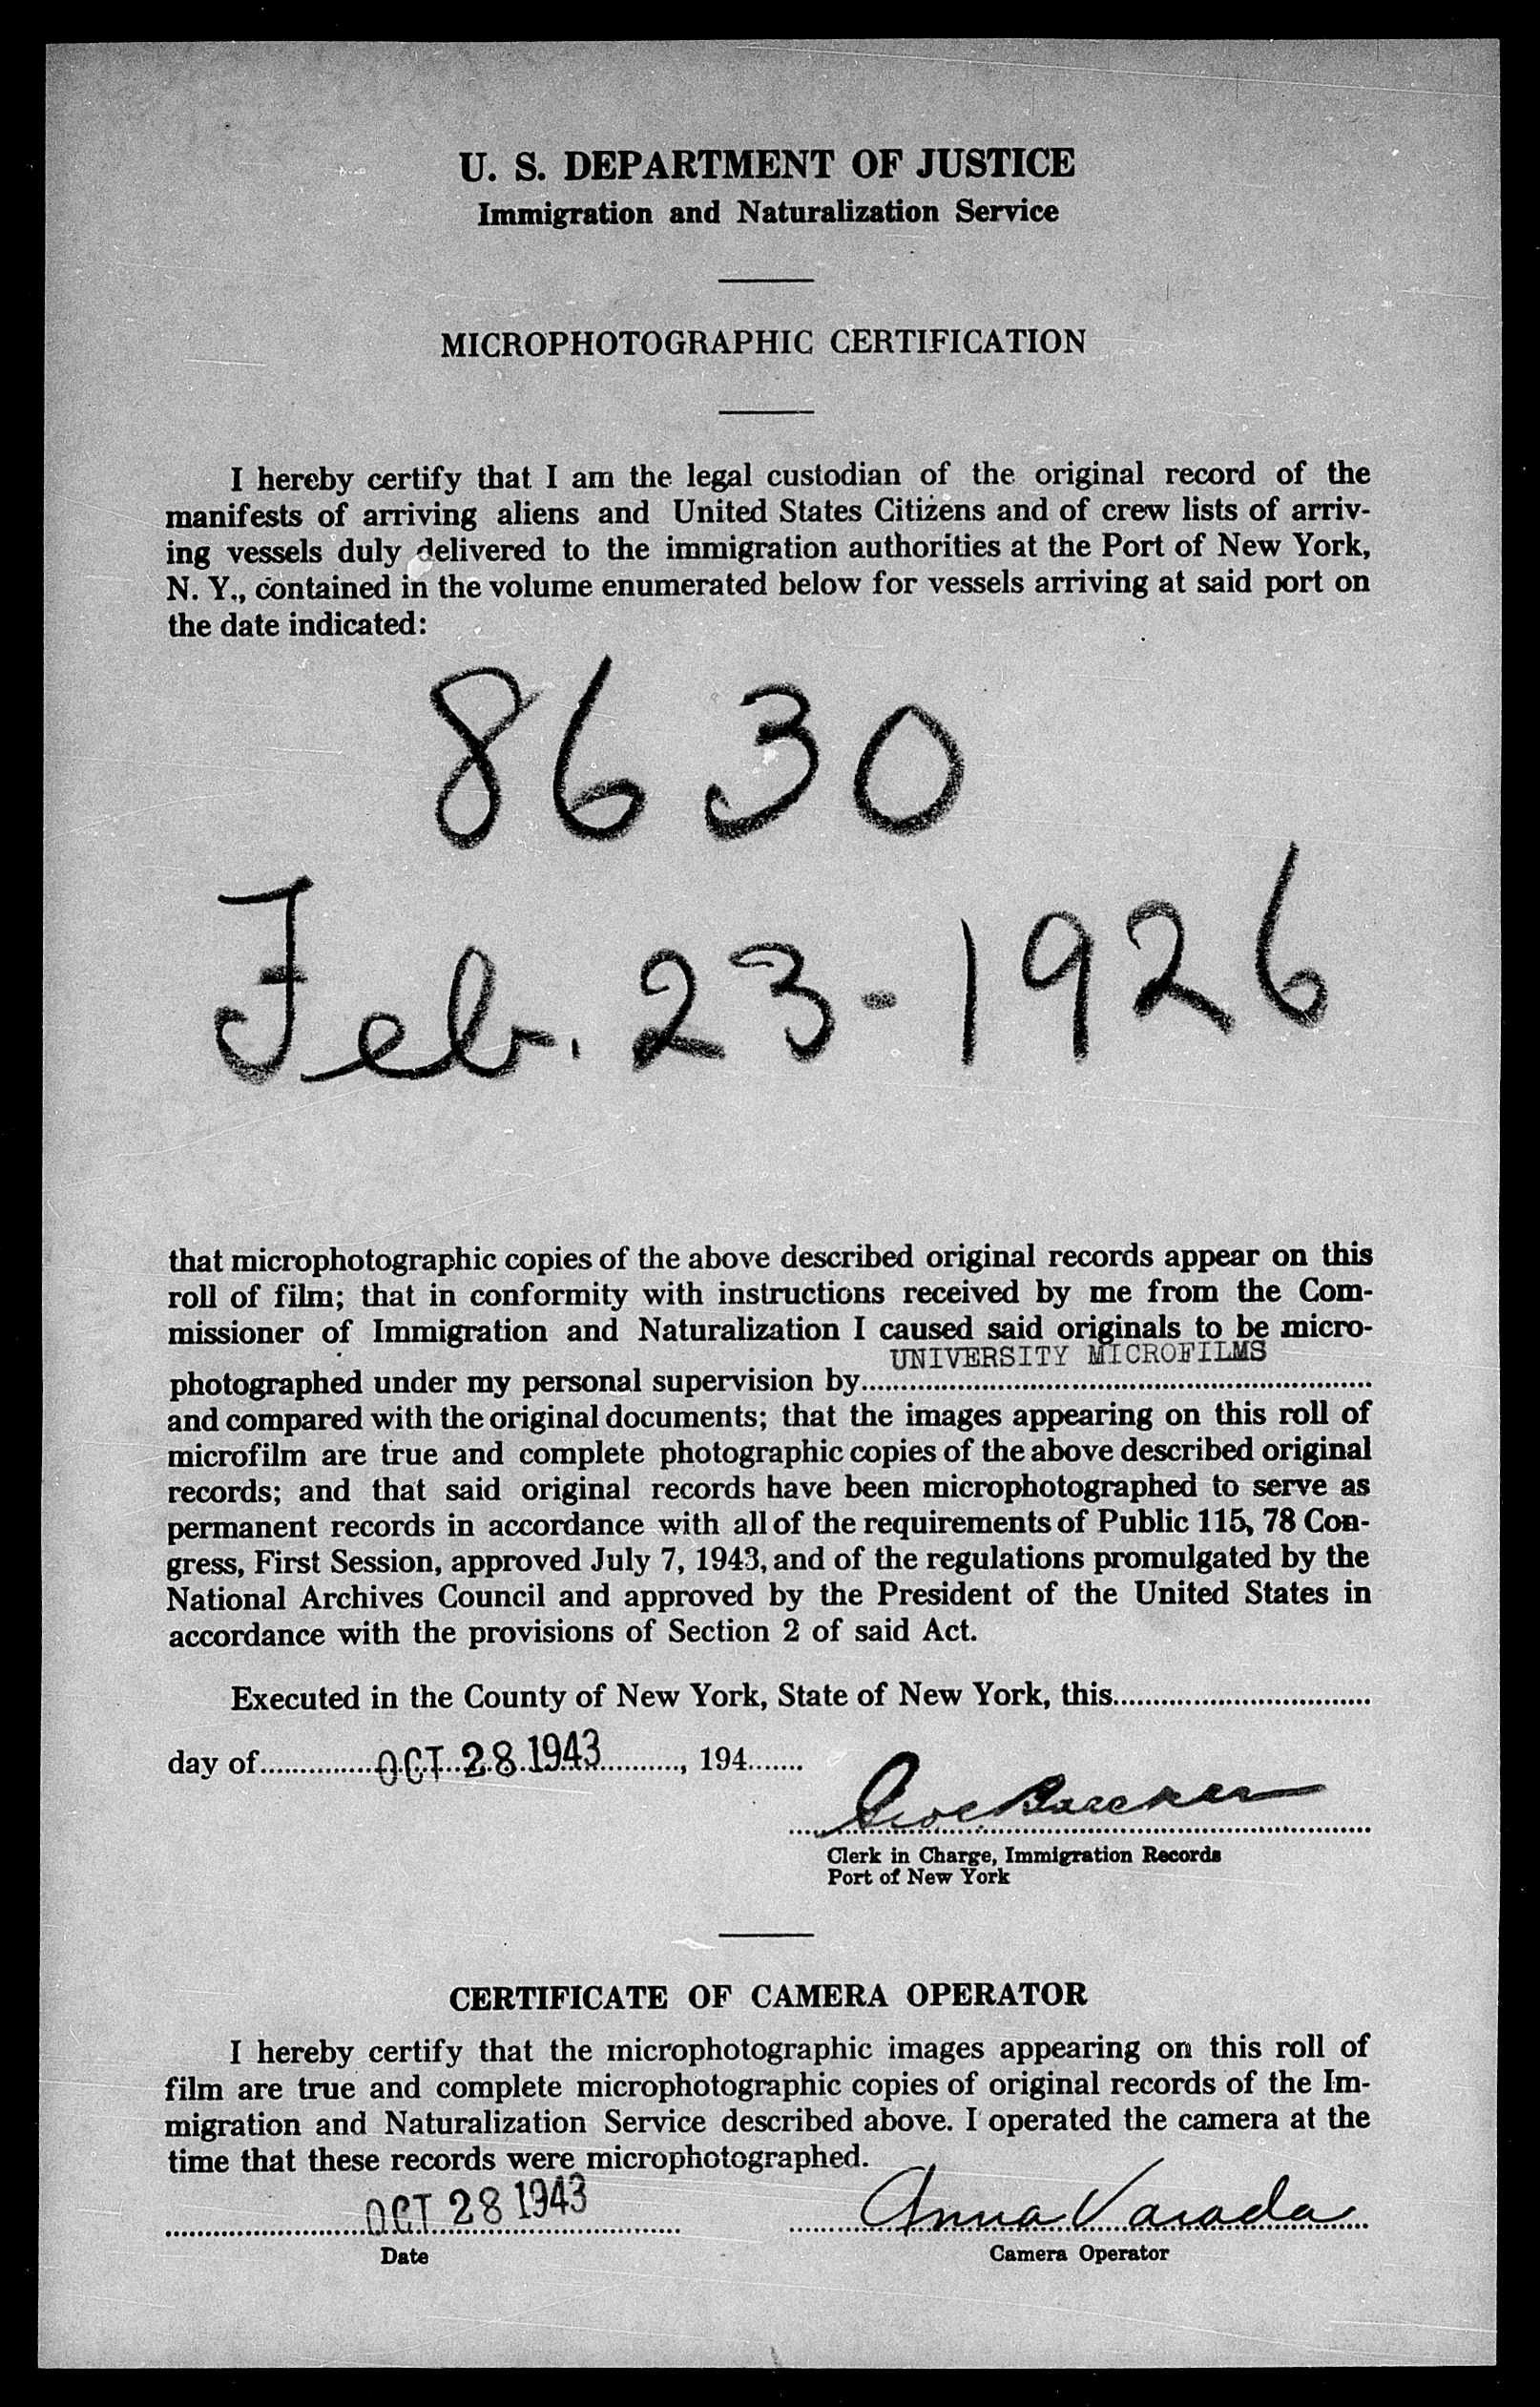 U. S. DEPARTMENT OF JUSTICE
Immigration and Naturalization Service
MICROPHOTOGRAPHIC CERTIFICATION
I hereby certify that I am the legal custodian of the original record of the
manifests of arriving aliens and United States Citizens and of crew lists of arriv-
ing vessels duly delivered to the immigration authorities at the Port of New York,
N. Y., contained in the volume enumerated below for vessels arriving at said port on
the date indicated:
8630
Feb. 23-1926
that microphotographic copies of the above described original records appear on this
roll of film; that in conformity with instructions received by me from the Com-
missioner of Immigration and Naturalization I caused said originals to be micro-
UNIVERSITY MICROFILMS
photographed under my personal supervision by
and compared with the original documents; that the images appearing on this roll of
microfilm are true and complete photographic copies of the above described original
records; and that said original records have been microphotographed to serve as
permanent records in accordance with all of the requirements of Public 115, 78 Con-
gress, First Session, approved July 7, 1943, and of the regulations promulgated by the
National Archives Council and approved by the President of the United States in
accordance with the provisions of Section 2 of said Act.
Executed in the County of New York, State of New York, this
day of OCT 28 1943, 194
Clerk in Charge, Immigration Records
Port of New York
CERTIFICATE OF CAMERA OPERATOR
I hereby certify that the microphotographic images appearing on this roll of
film are true and complete microphotographic copies of original records of the Im-
migration and Naturalization Service described above. I operated the camera at the
time that these records were microphotographed.
OCT 28 1943 Anna Varada
Date Camera Operator